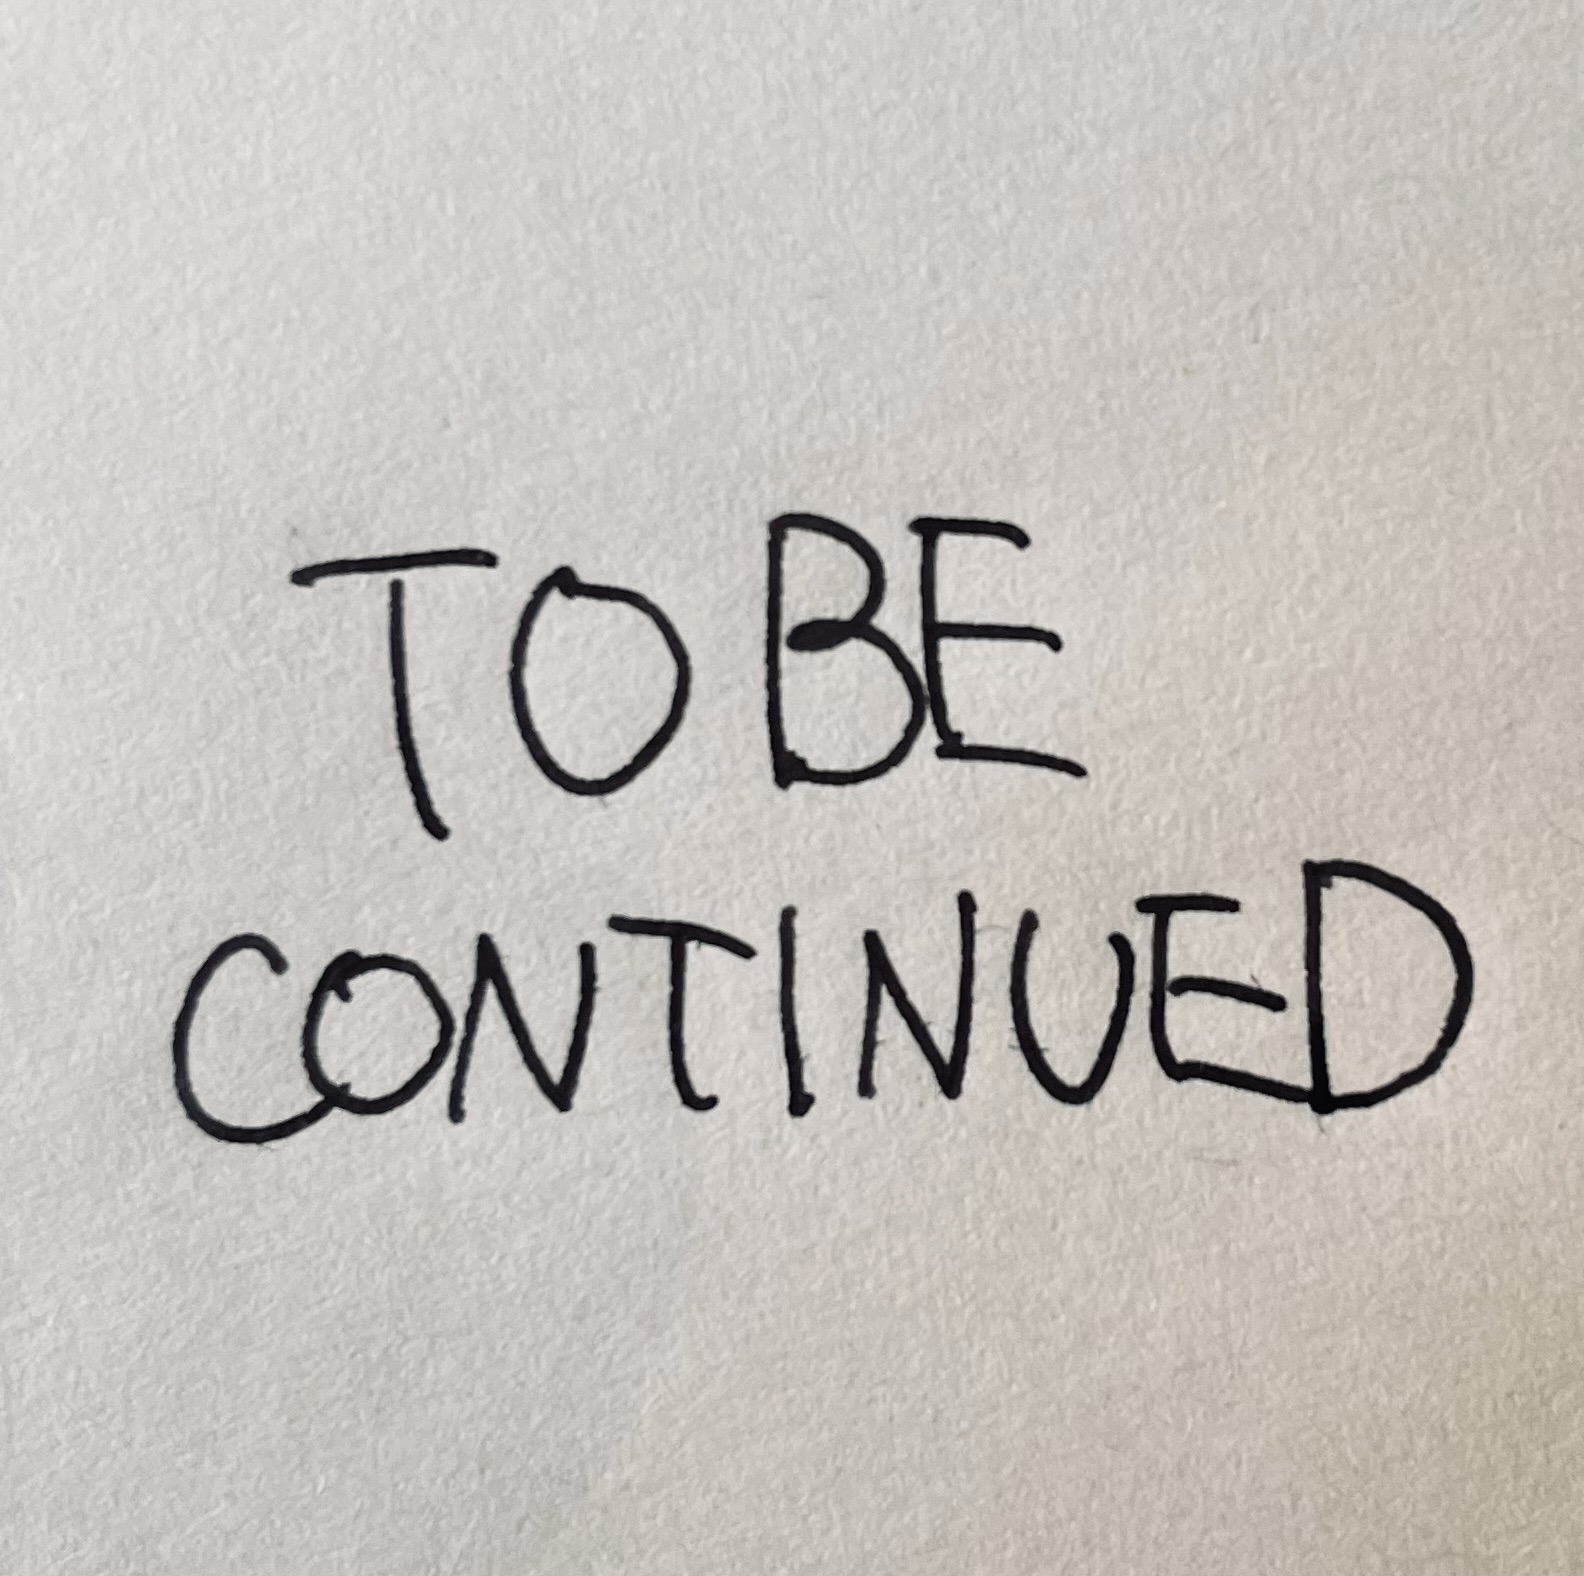 TO BE
CONTINUED